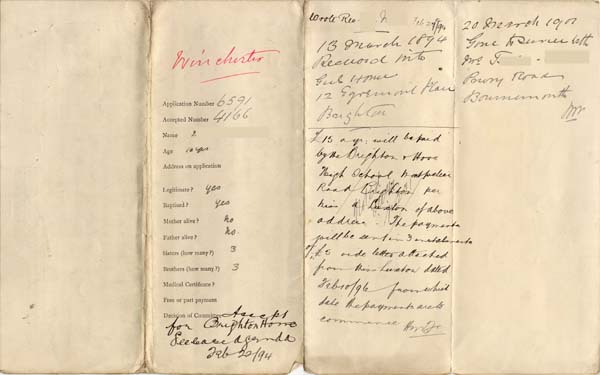 Winchester
Application Number 6591
Accepted Number 4166
Name
Age 10 yrs
Address on application
Legitimate? yes
Baptised? yes
Mother alive? no
Father alive? no
Sisters (how many?) 3
Brothers (how many?) 3
Medical Certificate?
Free or part payment
Decision of Committee Accept
for Brighton Home
See Case agenda
Feb 22/94
Wrote Rev.
13 March 1894
Received into
Girls Home
12 Egremont Place
Brighton
£15 a yr. will be paid
by the Brighton & Hove
High School Montpelier
Road Brighton per
Miss Luxton of above
address. The payments
will be sent in 3 instalments
of £5 vide letter attached
from Miss Luxton dated
Feb 10/96 from which
date the payments are to
commence
20 March 1901
Gone to Service with
Mrs
Road
Bournemouth